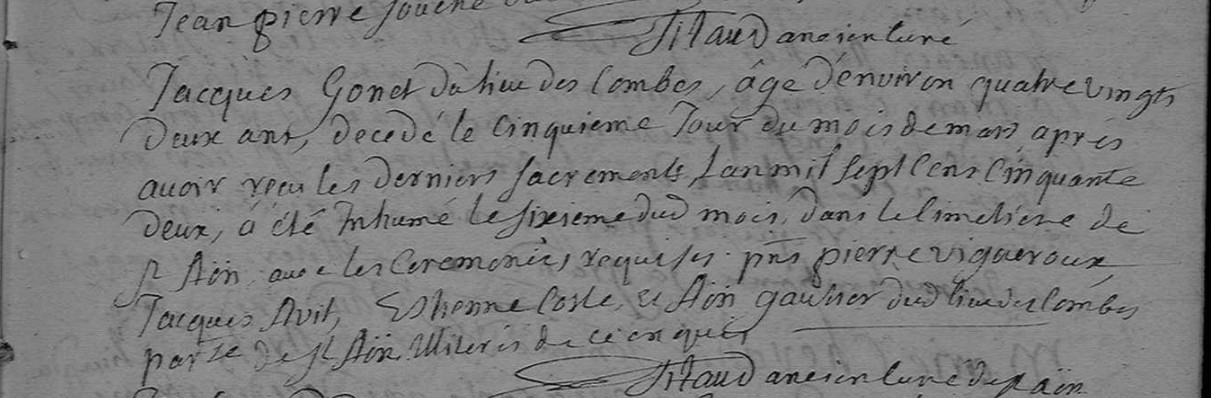 Jean pierre
Sitaud ancien curé
Jacques Gonet du lieu des Combes, âgé d'environ quatre vingts
Deux ans, decedé le cinquieme Jour du mois de mars après
avoir reçu les derniers sacrements, Lan mil sept cens cinquante
deux, a été Inhumé le sixieme dud mois, dans le Cimetiere de
st Aôn avec les Ceremonies requises. pnts pierre vigueroux,
Jacques Avit, Estienne Coste, et Aôn gautier dud lieu des Combes
parse de st Aôn Illiterés de ce enquis
Sitaud ancien curé de st aôn